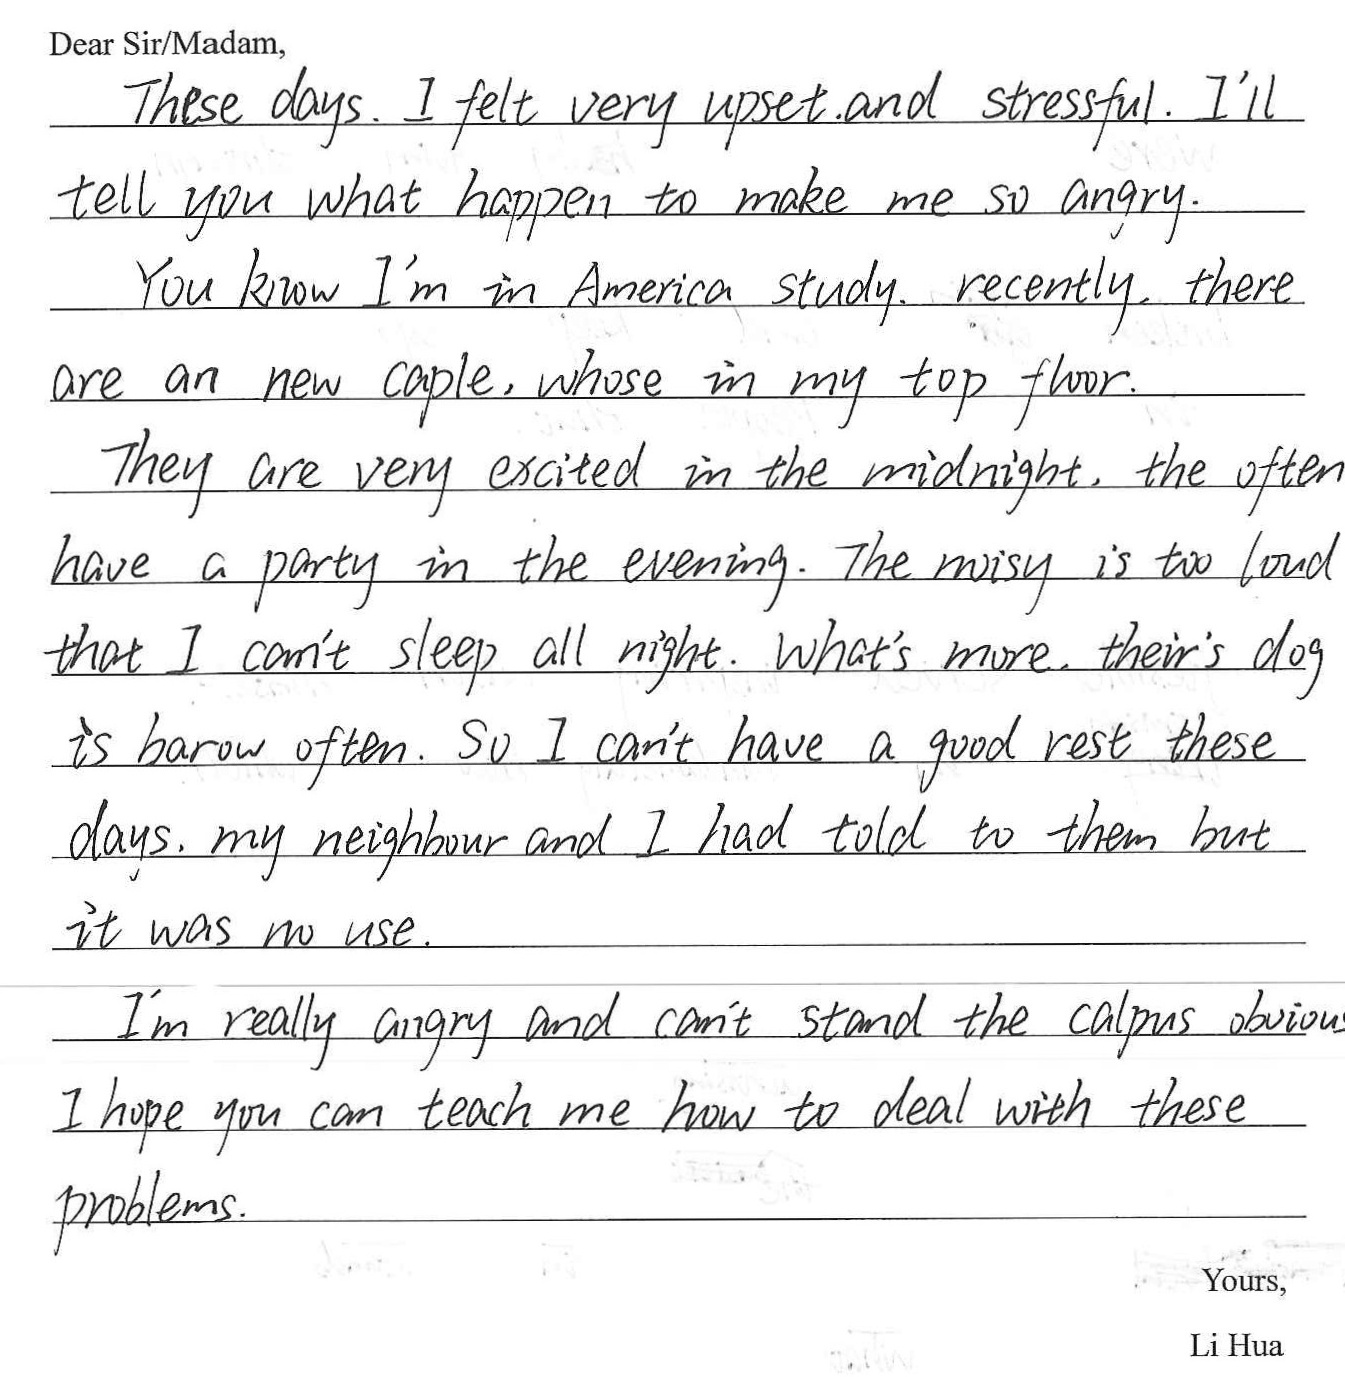 Dear Sir/Madam,
These days. I felt very upset.and stressful. I'll
tell you what happen to make me so angry.
You know I'm in America study. recently. there
are an new caple, whose in my top floor.
They are very excited in the midnight. the often
have a party in the evening. The noisy is too loud
that I can't sleep all night. What's more. their's dog
is barow often. So I can't have a good rest these
days. my neighbour and I had told to them but
it was no use.
I'm really angry and can't stand the calpus obvious
I hope you can teach me how to deal with these
problems.
Yours,
Li Hua